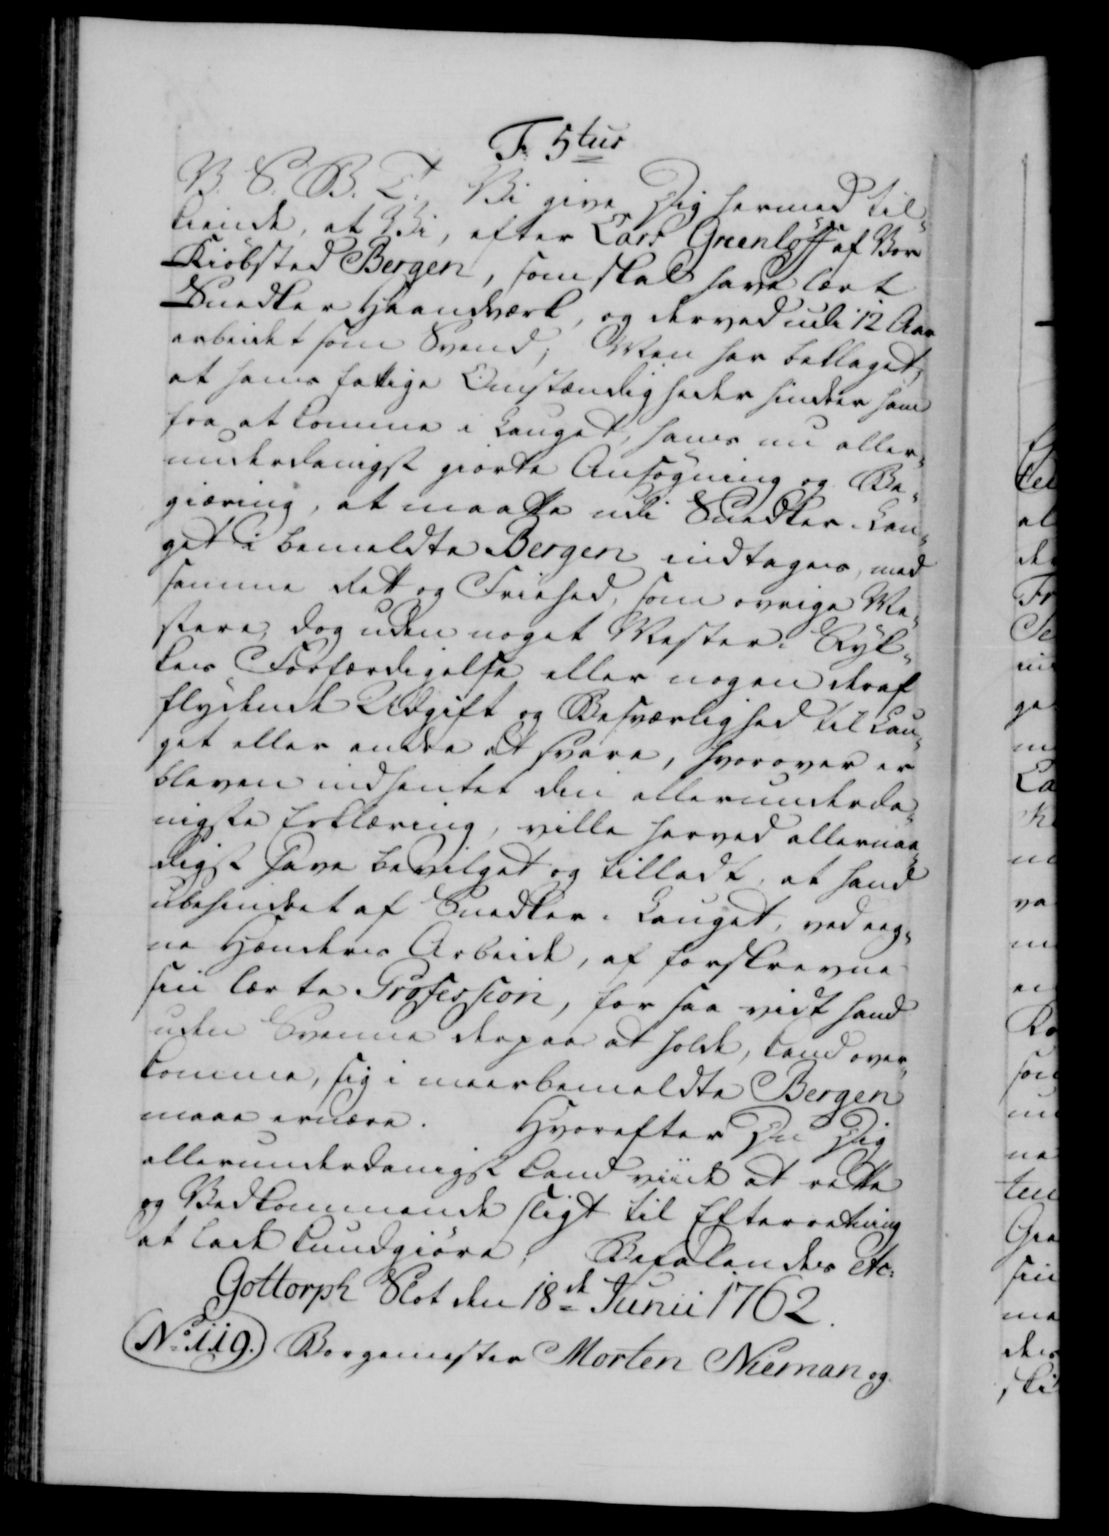 F. 5tus
V. S. B. T. Vi give Dig hermed til-
kiende, at Vi, efter Lars Greenlöff af Vor
Kiöbsted Bergen, som skal have lært
Snedker Haandværk, og derved udi 12 Aar
arbeidet som Svend, Men har beklaget,
at hans fattige Omstændigheder hindrer ham
fra at komme i Lauget, hans nu aller-
underdanigst giorte Ansøgning og Be-
giæring, at maatte udi Snedker-Lau-
get i bemeldte Bergen indtages, med
samme Rett og Friehed, som øvrige Me-
stere, dog uden noget Mester-Styk-
kes Forfærdigelse eller nogen deraf
flydende Udgift og Besværlighed til Lau-
get eller andre at svare, hvorover er
bleven indhentet din allerunderda-
nigste Erklæring, ville herved allernaa-
digst have bevilget og tilladt, at hand
ubehindret af Snedker-Lauget, ved eeg-
ne Hænders Arbeide, af forskrevne
sin lærte Profession, for saa vidt hand
uden Svenne derpaa at holde, kand over-
komme, sig i meerbemeldte Bergen
maae ernære. Hvorefter Du Dig
allerunderdanigst kand viide at rette
og Vedkommende sligt til Efterretning
at lade kundgiøre, Befalendes etc:
Gottorph Slot den 18de Junii 1762.
No. 119. Borgemester Morten Nieman og